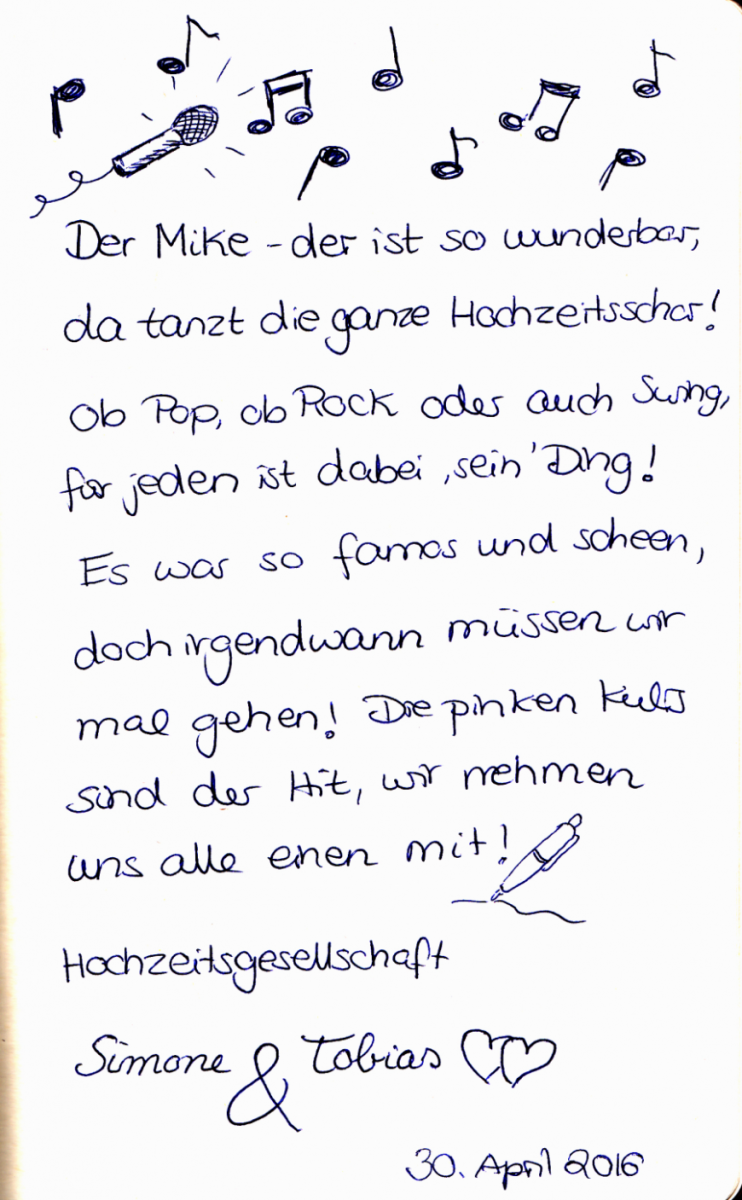 Der Mike - der ist so wunderbar,
da tanzt die ganze Hochzeitsschar!
Ob Pop, ob Rock oder auch Swing,
für jeden ist dabei ‚sein' Ding!
Es war so famos und scheen,
doch irgendwann müssen wir
mal gehen! Die pinken Kulis
sind der Hit, wir nehmen
uns alle einen mit!
Hochzeitsgesellschaft
Simone & Tobias
30. April 2016